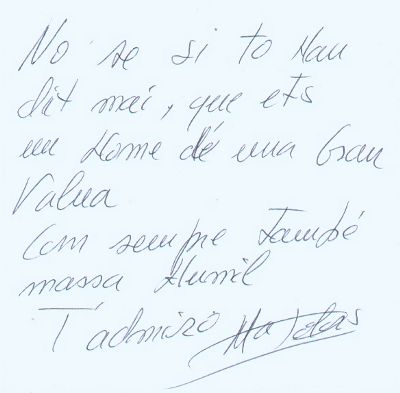 No se si to Han
dit mai, que ets
un Home dé una Gran
Valua
Com sempre També
massa Humil
T'admiro